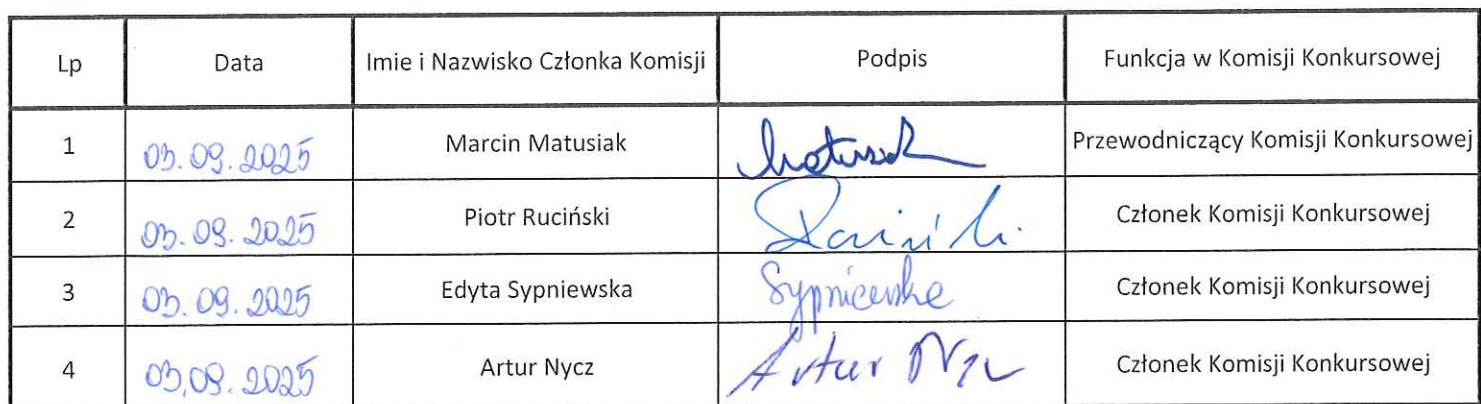 Lp Data Imie i Nazwisko Członka Komisji Podpis Funkcja w Komisji Konkursowej
1 03.09.2025 Marcin Matusiak Matusiak Przewodniczący Komisji Konkursowej
2 03.09.2025 Piotr Ruciński Ruciński Członek Komisji Konkursowej
3 03.09.2025 Edyta Sypniewska Sypniewska Członek Komisji Konkursowej
4 03.09.2025 Artur Nycz Artur Nycz Członek Komisji Konkursowej